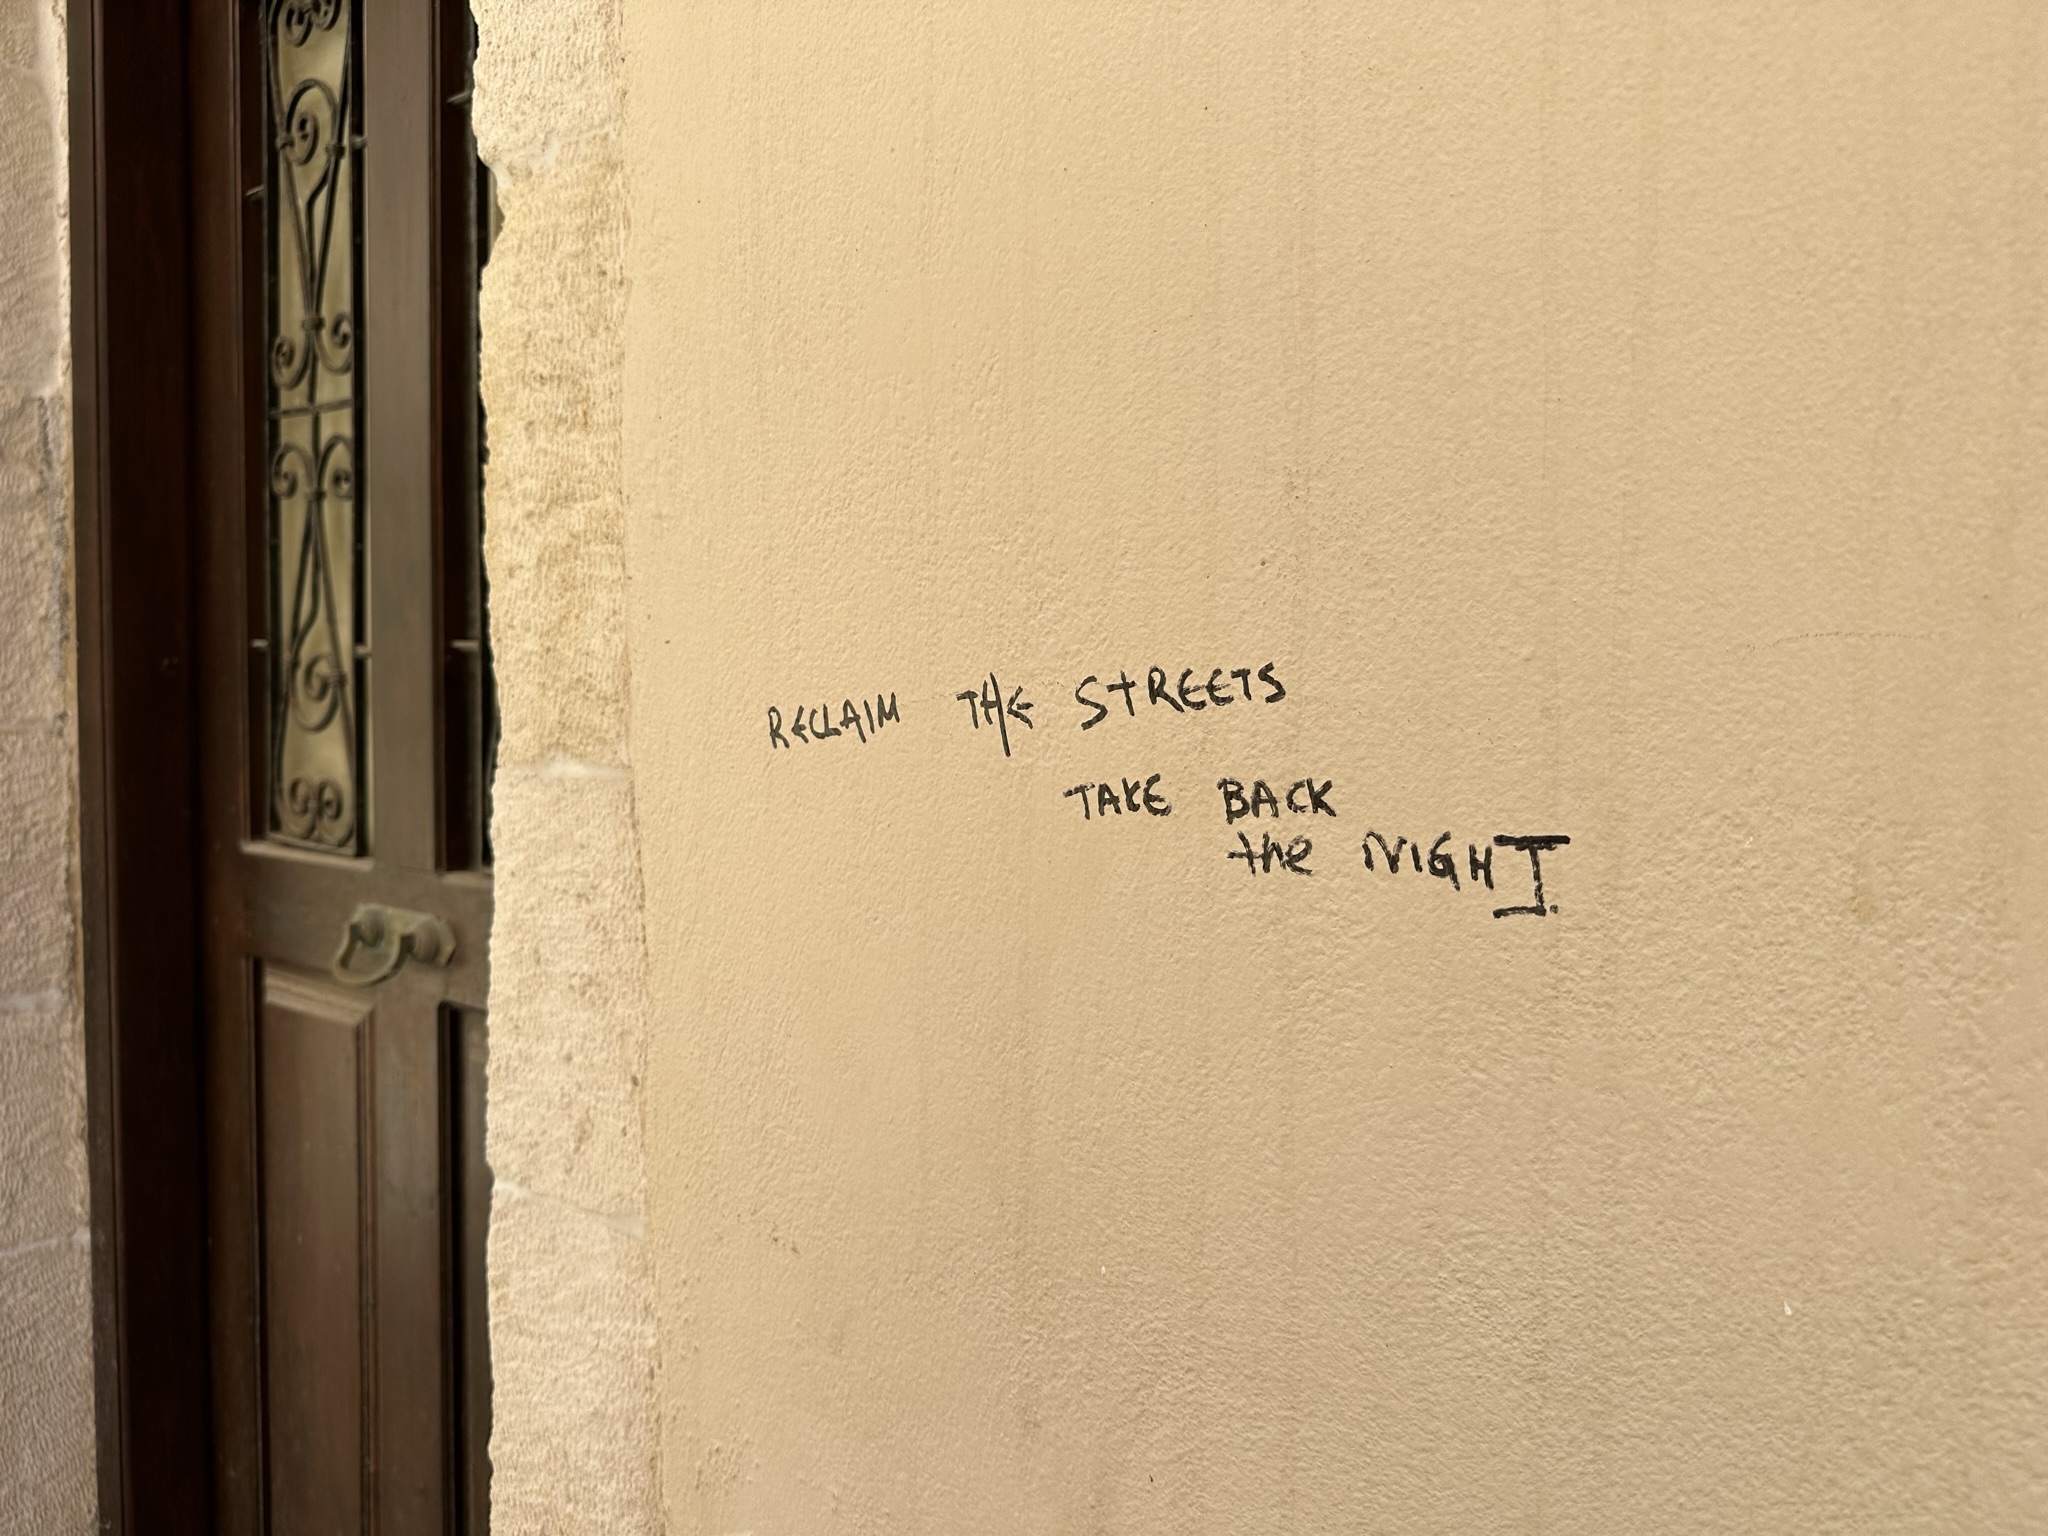 RECLAIM THE STREETS
TAKE BACK
the NIGHT.